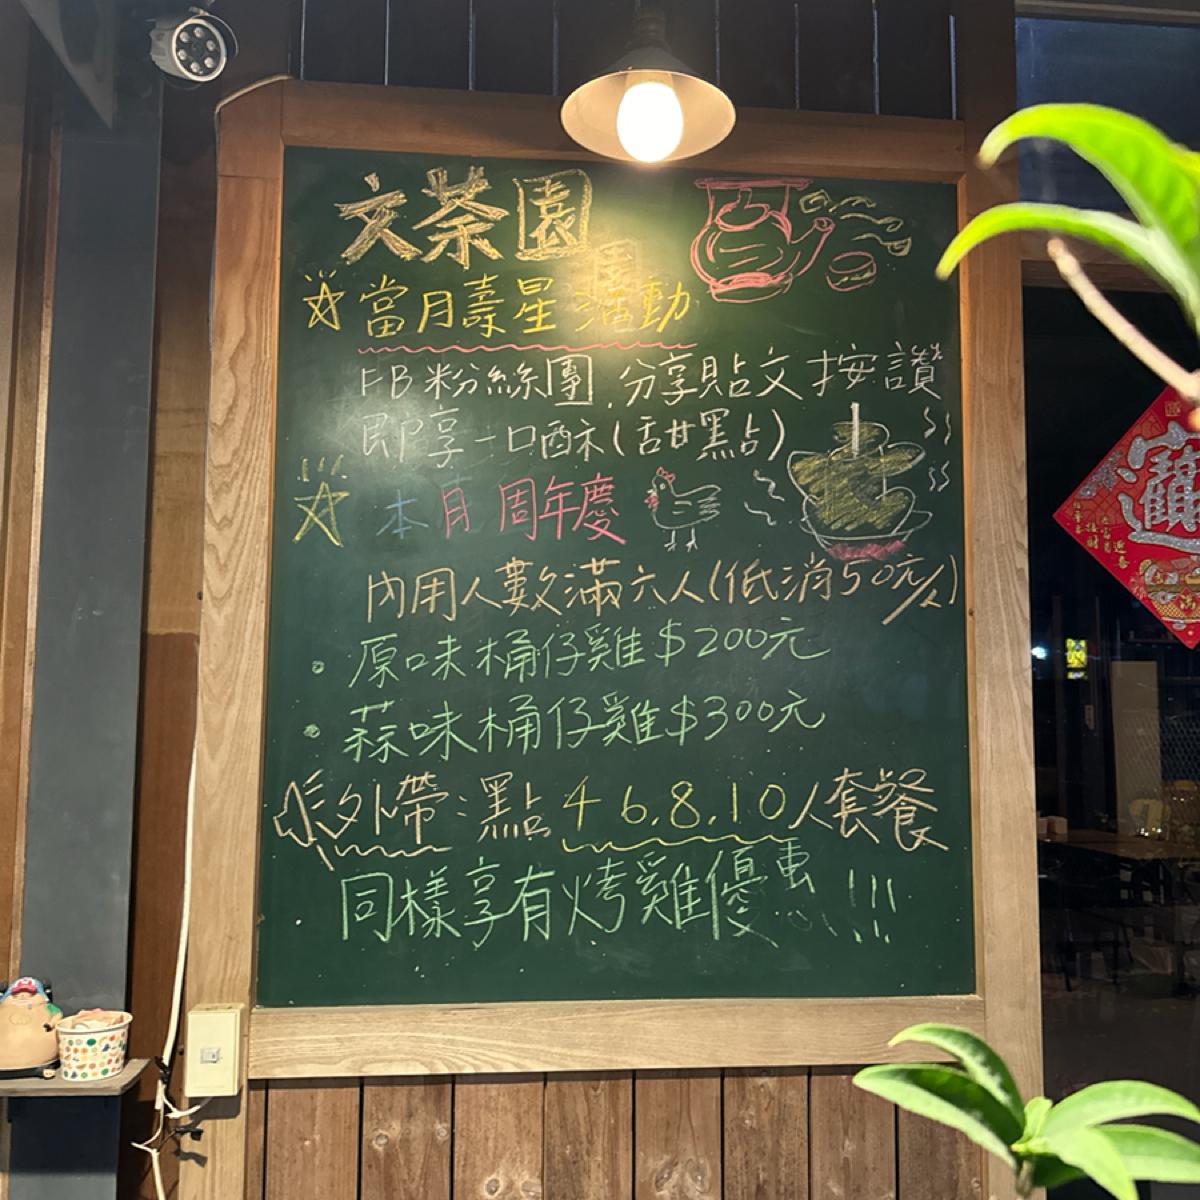 文茶園
當月壽星活動
FB粉絲團.分享貼文按讚
即享一口酥(甜點)
本月周年慶
內用人數滿六人(低消50元/人)
• 原味桶仔雞$200元
• 蒜味桶仔雞$300元
外帶:點4 6.8.10人套餐
同樣享有烤雞優惠!!!